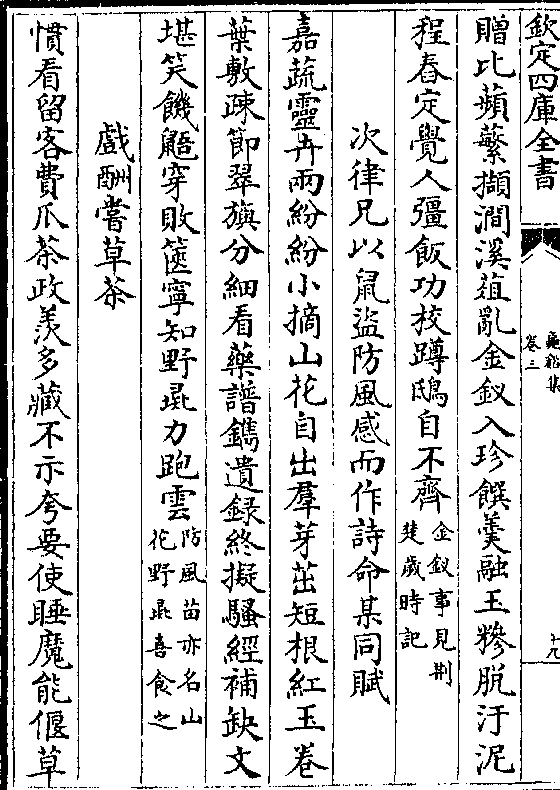 欽定四庫全書
龜谿集
卷三
十九
贈比蘋蘩擷澗溪葅亂金釵入珍饌羮融玉糝脫汙泥
程舂定覺人彊飯功校蹲鴟自不齊金釵事見荆
楚歲時記
次律兄以鼠盜防風感而作詩命某同賦
嘉蔬靈卉兩紛紛小摘山花自出羣芽茁短根紅玉巻
葉敷疎節翠旗分細看藥譜鐫遺録終擬騷經補缺文
堪笑饑鼯穿敗篋寧知野鹿力跑雲防風苗亦名山
花野鹿喜食之
戲酬嘗草茶
慣看留客費瓜茶政羨多藏不示夸要使睡魔能偃草